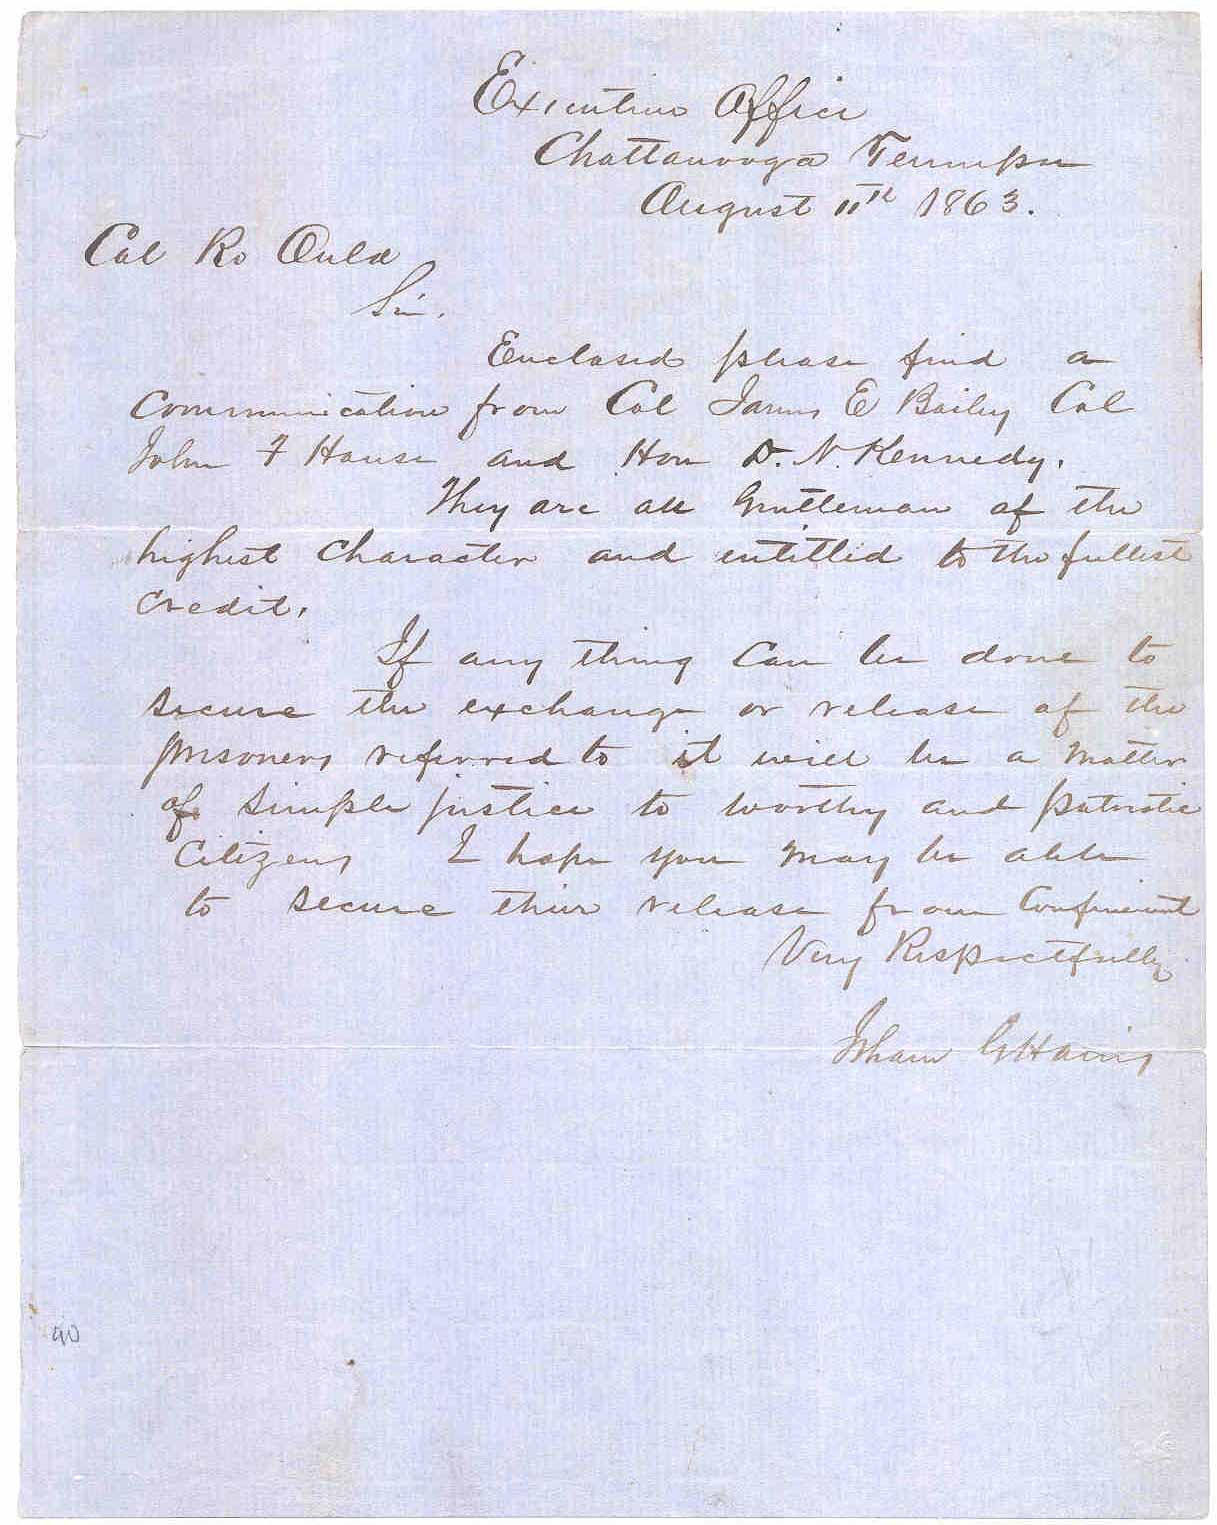 Executive Office
Chattanooga Tennessee
August 11th 1863.
Col Ro Ould
Sir.
Enclosed please find a
communication from Col James E Bailey Col
John F House and Hon D. N. Kennedy.
They are all Gentleman of the
highest Character and entitled to the fullest
Credit.
If any thing can be done to
secure the exchange or release of the
prisoners referred to it will be a matter
of simple justice to worthy and patriotic
Citizens I hope you may be able
to secure their release from Confinement
Very Respectfully
Isham G Harris
90